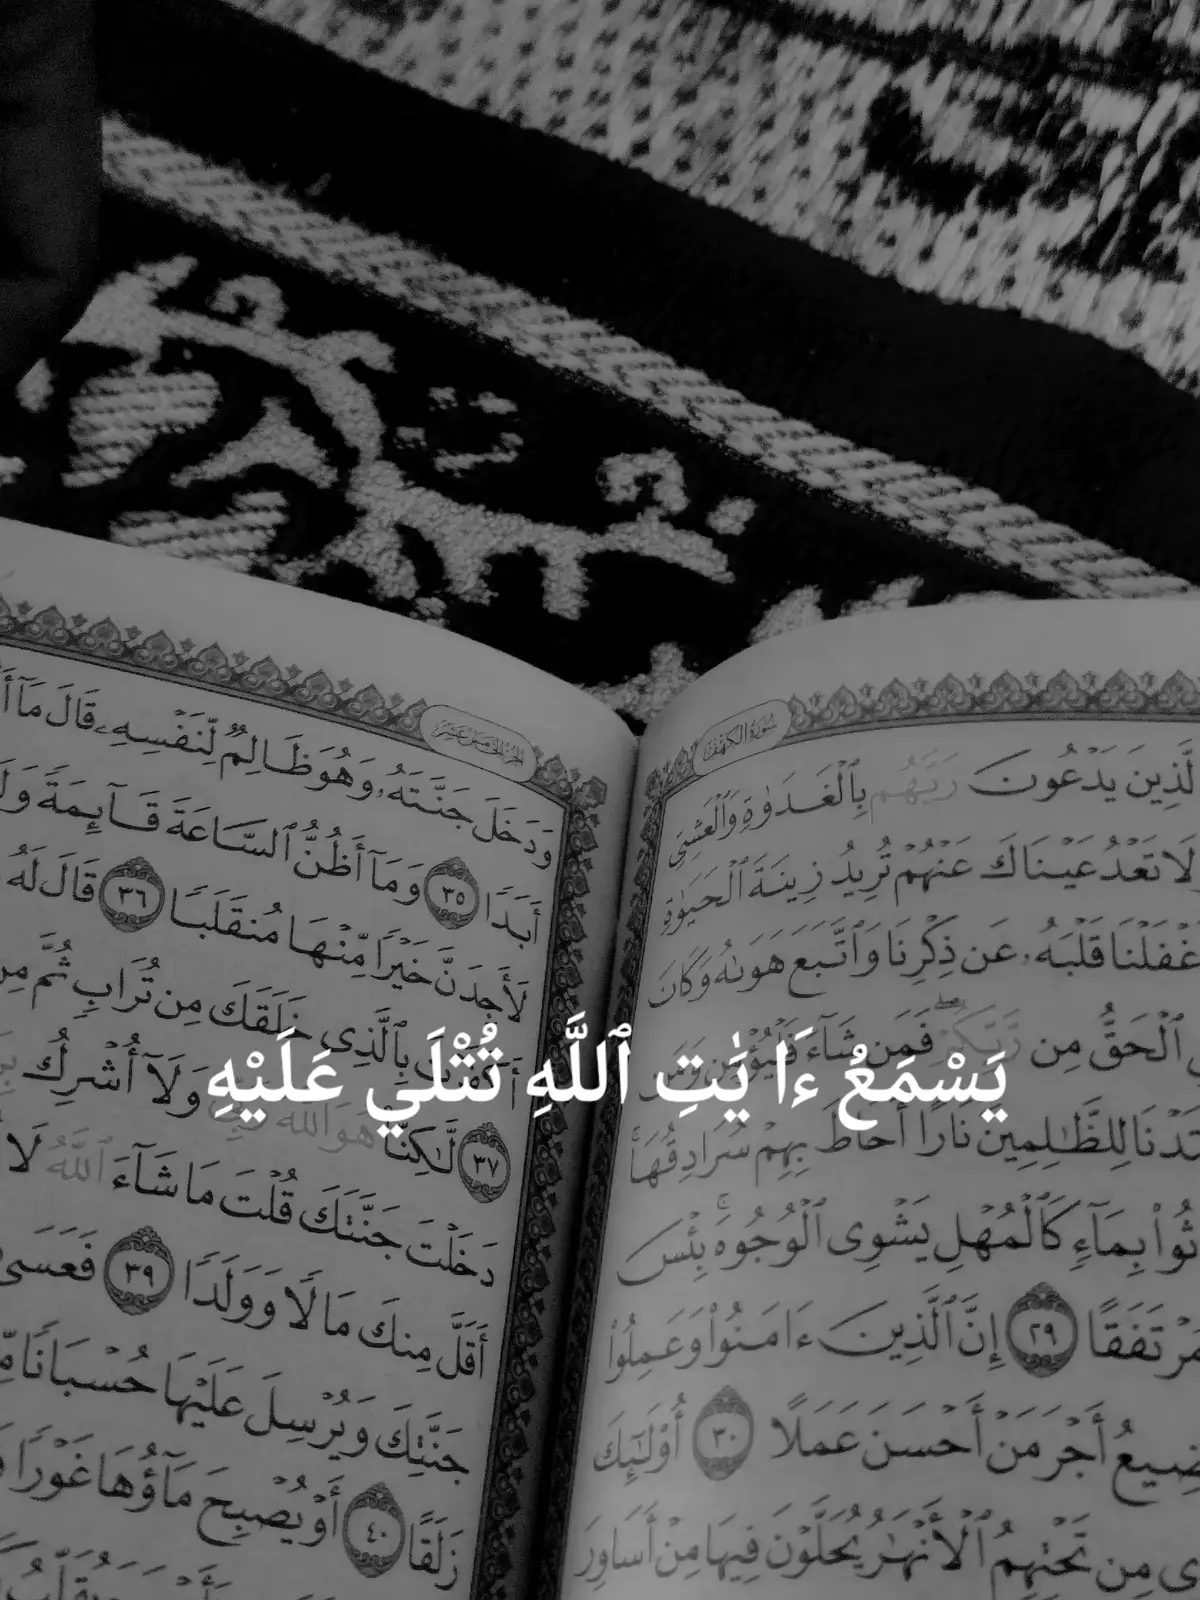 سُورَةُ الكَهْفِ
لَّذِينَ يَدْعُونَ رَبَّهُم بِٱلْغَدَوٰةِ وَٱلْعَشِىِّ
لَا تَعْدُ عَيْنَاكَ عَنْهُمْ تُرِيدُ زِينَةَ ٱلْحَيَوٰةِ
غْفَلْنَا قَلْبَهُۥ عَن ذِكْرِنَا وَٱتَّبَعَ هَوَىٰهُ وَكَانَ
ٱلْحَقُّ مِن رَّبِّكُمْ ۖ فَمَن شَآءَ فَلْيُؤْمِن وَمَن
تَدْنَا لِلظَّٰلِمِينَ نَارًا أَحَاطَ بِهِمْ سُرَادِقُهَا ۚ
ثُوا۟ بِمَآءٍ كَٱلْمُهْلِ يَشْوِى ٱلْوُجُوهَ ۚ بِئْسَ
مُرْتَفَقًا ٢٩ إِنَّ ٱلَّذِينَ ءَامَنُوا۟ وَعَمِلُوا۟
ضِيعُ أَجْرَ مَنْ أَحْسَنَ عَمَلًا ٣٠ أُو۟لَٰٓئِكَ
ى مِن تَحْتِهِمُ ٱلْأَنْهَٰرُ يُحَلَّوْنَ فِيهَا مِنْ أَسَاوِرَ
وَدَخَلَ جَنَّتَهُۥ وَهُوَ ظَالِمٌ لِّنَفْسِهِۦ قَالَ مَآ أَ
أَبَدًا ٣٥ وَمَآ أَظُنُّ ٱلسَّاعَةَ قَآئِمَةً وَلَ
لَأَجِدَنَّ خَيْرًا مِّنْهَا مُنقَلَبًا ٣٦ قَالَ لَهُۥ
أَكَفَرْتَ بِٱلَّذِى خَلَقَكَ مِن تُرَابٍ ثُمَّ مِن
٣٧ لَّٰكِنَّا۠ هُوَ ٱللَّهُ رَبِّى وَلَآ أُشْرِكُ
دَخَلْتَ جَنَّتَكَ قُلْتَ مَا شَآءَ ٱللَّهُ لَا
أَقَلَّ مِنكَ مَالًا وَوَلَدًا ٣٩ فَعَسَىٰ
جَنَّتِكَ وَيُرْسِلَ عَلَيْهَا حُسْبَانًا مِّ
زَلَقًا ٤٠ أَوْ يُصْبِحَ مَآؤُهَا غَوْرًا
يَسْمَعُ ءَا يَٰتِ ٱللَّهِ تُتْلَي عَلَيْهِ